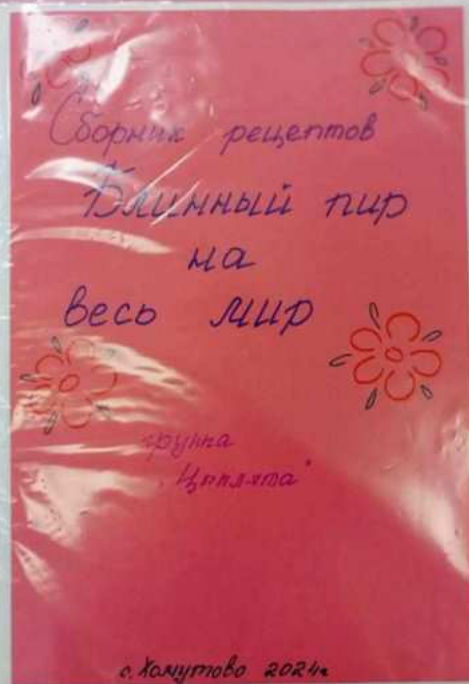 Сборник рецептов
Блинный пир
на
весь мир
группа
"Цыплята"
с. Хомутово 2024г